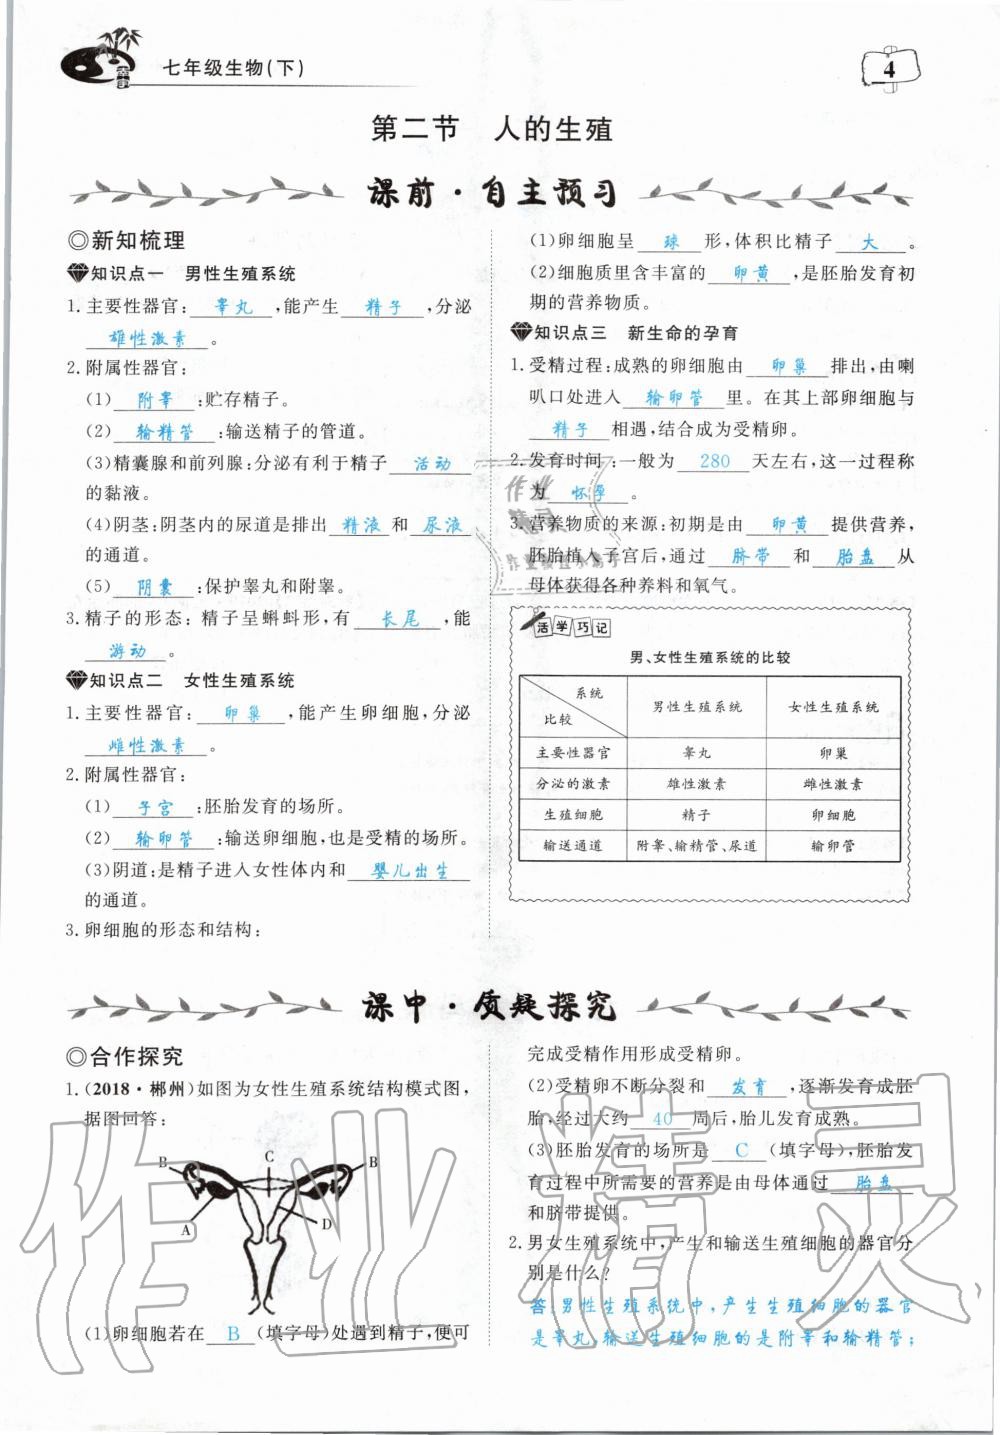 七年级生物(下)
4
第二节 人的生殖
课前·自主预习
◎新知梳理
知识点一 男性生殖系统
1.主要性器官:睾丸,能产生精子,分泌
雄性激素。
2.附属性器官:
(1)附睾:贮存精子。
(2)输精管:输送精子的管道。
(3)精囊腺和前列腺:分泌有利于精子活动
的黏液。
(4)阴茎:阴茎内的尿道是排出精液和尿液
的通道。
(5)阴囊:保护睾丸和附睾。
3.精子的形态:精子呈蝌蚪形,有长尾,能
游动。
知识点二 女性生殖系统
1.主要性器官:卵巢,能产生卵细胞,分泌
雌性激素。
2.附属性器官:
(1)子宫:胚胎发育的场所。
(2)输卵管:输送卵细胞,也是受精的场所。
(3)阴道:是精子进入女性体内和婴儿出生
的通道。
3.卵细胞的形态和结构:
(1)卵细胞呈球形,体积比精子大。
(2)细胞质里含丰富的卵黄,是胚胎发育初
期的营养物质。
知识点三 新生命的孕育
1.受精过程:成熟的卵细胞由卵巢排出,由喇
叭口处进入输卵管里。在其上部卵细胞与
精子相遇,结合成为受精卵。
2.发育时间:一般为280天左右,这一过程称
为怀孕。
3.营养物质的来源:初期是由卵黄提供营养,
胚胎植入子宫后,通过脐带和胎盘从
母体获得各种养料和氧气。
活学巧记
男、女性生殖系统的比较
系统
比较 男性生殖系统 女性生殖系统
主要性器官 睾丸 卵巢
分泌的激素 雄性激素 雌性激素
生殖细胞 精子 卵细胞
输送通道 附睾、输精管、尿道 输卵管
课中·质疑探究
◎合作探究
1.(2018·郴州)如图为女性生殖系统结构模式图,
据图回答:
B C B
A D
(1)卵细胞若在B(填字母)处遇到精子,便可
完成受精作用形成受精卵。
(2)受精卵不断分裂和发育,逐渐发育成胚
胎,经过大约40周后,胎儿发育成熟。
(3)胚胎发育的场所是C(填字母),胚胎发
育过程中所需要的营养是由母体通过胎盘
和脐带提供。
2.男女生殖系统中,产生和输送生殖细胞的器官分
别是什么?
答:男性生殖系统中,产生生殖细胞的器官
是睾丸,输送生殖细胞的是附睾和输精管;
作业精灵